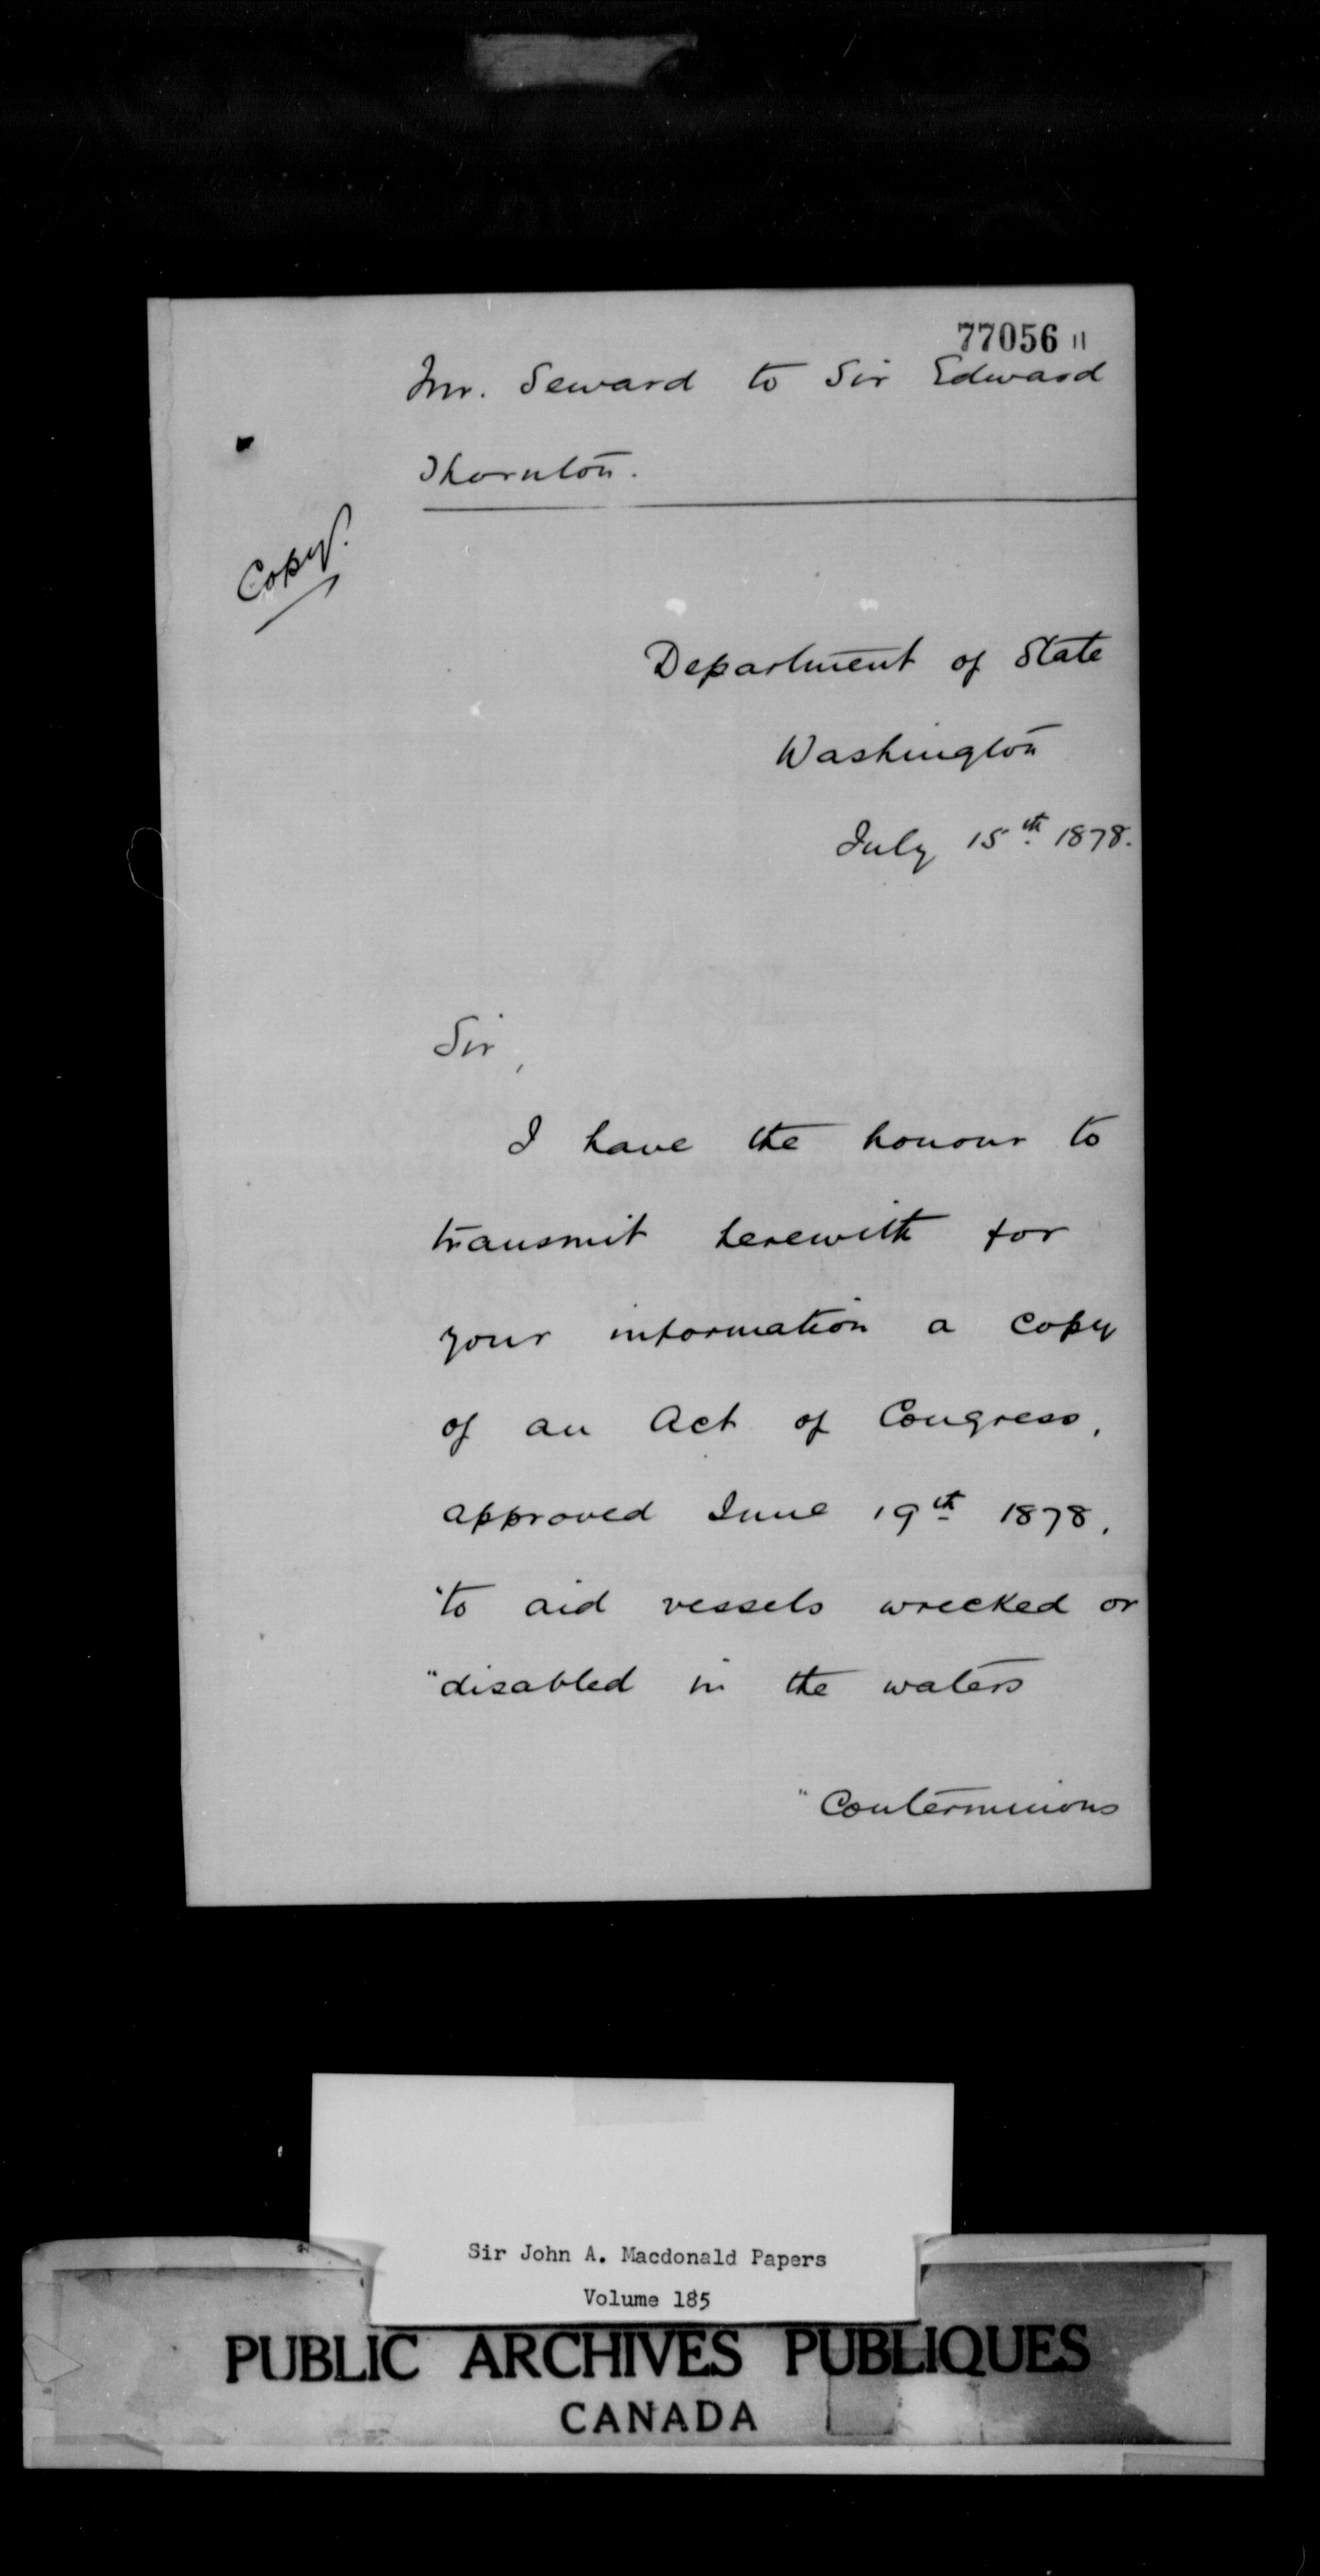 77056 11
Mr. Seward to Sir Edward
Thornton.
Copy.
Department of State
Washington
July 15th. 1878.
Sir,
I have the honour to
transmit herewith for
your information a copy
of an Act of Congress,
approved June 19th 1878,
"to aid vessels wrecked or
"disabled in the waters
"Conterminous
Sir John A. Macdonald Papers
Volume 185
PUBLIC ARCHIVES PUBLIQUES
CANADA